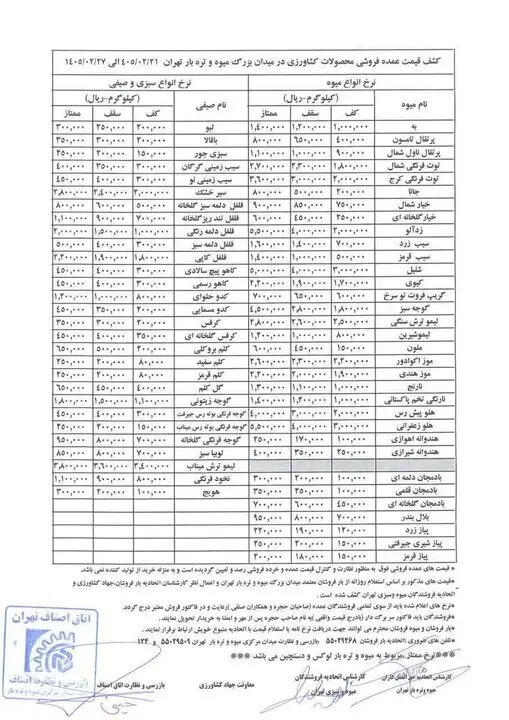 کشف قیمت عمده فروشی محصولات کشاورزی در میدان بزرگ میوه و تره بار تهران ۴۰۵/۰۲/۲۱ الی ۱۴۰۵/۰۲/۲۷
نرخ انواع میوه نرخ انواع سبزی و صیفی
نام میوه (کیلوگرم-ریال) نام صیفی (کیلوگرم-ریال)
کف سقف ممتاز کف سقف ممتاز
به ۱,۰۰۰,۰۰۰ ۱,۲۰۰,۰۰۰ ۱,۴۰۰,۰۰۰ لبو ۲۰۰,۰۰۰ ۲۵۰,۰۰۰ ۳۰۰,۰۰۰
پرتقال تامسون ۴۰۰,۰۰۰ ۶۵۰,۰۰۰ ۸۰۰,۰۰۰ باقالا ۲۰۰,۰۰۰ ۳۰۰,۰۰۰ ۳۵۰,۰۰۰
پرتقال ناول شمال ۱,۰۰۰,۰۰۰ ۱,۱۰۰,۰۰۰ سبزی جور ۱۵۰,۰۰۰ ۲۰۰,۰۰۰ ۲۵۰,۰۰۰
توت فرنگی شمال ۱,۸۰۰,۰۰۰ ۲,۳۰۰,۰۰۰ ۲,۷۰۰,۰۰۰ سیب زمینی گرگان ۳۰۰,۰۰۰ ۳۵۰,۰۰۰ ۴۰۰,۰۰۰
توت فرنگی کرج ۲,۰۰۰,۰۰۰ ۳,۰۰۰,۰۰۰ ۳,۶۰۰,۰۰۰ سیب زمینی نو ۴۰۰,۰۰۰ ۴۵۰,۰۰۰
جانا ۲۰۰,۰۰۰ ۵۰۰,۰۰۰ ۸۰۰,۰۰۰ سیر خشک ۲,۰۰۰,۰۰۰ ۲,۴۰۰,۰۰۰ ۲,۸۰۰,۰۰۰
خیار شمال ۷۵۰,۰۰۰ ۸۵۰,۰۰۰ ۹۰۰,۰۰۰ فلفل دلمه سبز گلخانه ۵۰۰,۰۰۰ ۶۰۰,۰۰۰ ۸۰۰,۰۰۰
خیارگلخانه ای ۲۵۰,۰۰۰ ۴۵۰,۰۰۰ ۶۰۰,۰۰۰ فلفل تند ریزگلخانه ۷۰۰,۰۰۰ ۹۰۰,۰۰۰ ۱,۱۰۰,۰۰۰
زردآلو ۲,۰۰۰,۰۰۰ ۴,۰۰۰,۰۰۰ ۵,۵۰۰,۰۰۰ فلفل دلمه رنگی ۱,۰۰۰,۰۰۰ ۱,۵۰۰,۰۰۰ ۲,۰۰۰,۰۰۰
سیب زرد ۷۰۰,۰۰۰ ۱,۴۰۰,۰۰۰ ۱,۶۰۰,۰۰۰ فلفل دلمه سبز ۳۰۰,۰۰۰ ۴۰۰,۰۰۰ ۵۰۰,۰۰۰
سیب قرمز ۵۰۰,۰۰۰ ۱,۰۰۰,۰۰۰ ۱,۴۰۰,۰۰۰ فلفل کاپی ۱,۸۰۰,۰۰۰ ۱,۹۰۰,۰۰۰ ۲,۲۰۰,۰۰۰
شلیل ۳,۰۰۰,۰۰۰ ۴,۰۰۰,۰۰۰ ۵,۰۰۰,۰۰۰ کاهو پیچ سالادی ۴۰۰,۰۰۰ ۴۵۰,۰۰۰
کیوی ۱,۷۰۰,۰۰۰ ۱,۹۰۰,۰۰۰ ۲,۲۰۰,۰۰۰ کاهو رسمی ۴۰۰,۰۰۰ ۴۵۰,۰۰۰
گریپ فروت تو سرخ ۶۰۰,۰۰۰ ۶۵۰,۰۰۰ ۷۰۰,۰۰۰ کدو حلوای ۸۰۰,۰۰۰ ۱,۰۰۰,۰۰۰ ۱,۲۰۰,۰۰۰
گوجه سبز ۱,۸۰۰,۰۰۰ ۲,۸۰۰,۰۰۰ ۴,۵۰۰,۰۰۰ کدو مسمایی ۲۰۰,۰۰۰ ۳۵۰,۰۰۰ ۴۵۰,۰۰۰
لیمو ترش سنگی ۲,۵۰۰,۰۰۰ ۲,۶۰۰,۰۰۰ ۲,۸۰۰,۰۰۰ کرفس ۲۰۰,۰۰۰ ۳۰۰,۰۰۰ ۳۵۰,۰۰۰
لیموشیرین ۸۰۰,۰۰۰ ۱,۰۰۰,۰۰۰ ۱,۳۰۰,۰۰۰ کرفس گلخانه ای ۳۰۰,۰۰۰ ۴۰۰,۰۰۰ ۴۵۰,۰۰۰
ملون ۱۵۰,۰۰۰ ۴۵۰,۰۰۰ ۶۰۰,۰۰۰ کلم بروکلی ۲۰۰,۰۰۰ ۵۰۰,۰۰۰ ۶۵۰,۰۰۰
موز اکوادور ۲,۲۰۰,۰۰۰ ۲,۳۰۰,۰۰۰ ۲,۶۰۰,۰۰۰ کلم سفید ۸۰,۰۰۰ ۲۰۰,۰۰۰ ۲۵۰,۰۰۰
موز هندی ۱,۹۰۰,۰۰۰ ۲,۰۰۰,۰۰۰ ۲,۲۰۰,۰۰۰ کلم قرمز ۸۰,۰۰۰ ۲۰۰,۰۰۰ ۲۵۰,۰۰۰
نارنج ۱,۰۰۰,۰۰۰ ۱,۱۰۰,۰۰۰ ۱,۳۰۰,۰۰۰ گل کلم ۴۰۰,۰۰۰ ۴۵۰,۰۰۰ ۶۵۰,۰۰۰
نارنگی تخم پاکستانی ۱,۰۰۰,۰۰۰ ۱,۲۰۰,۰۰۰ ۱,۴۰۰,۰۰۰ گوجه زیتونی ۱,۱۰۰,۰۰۰ ۱,۵۰۰,۰۰۰ ۱,۸۰۰,۰۰۰
هلو پیش رس ۲,۰۰۰,۰۰۰ ۳,۰۰۰,۰۰۰ ۴,۰۰۰,۰۰۰ گوجه فرنگی بوته رس جیرفت ۳۰۰,۰۰۰ ۴۰۰,۰۰۰ ۴۵۰,۰۰۰
هلو زعفرانی ۳,۰۰۰,۰۰۰ ۴,۰۰۰,۰۰۰ ۵,۵۰۰,۰۰۰ گوجه فرنگی بوته رس میناب ۲۰۰,۰۰۰ ۱۵۰,۰۰۰ ۲۵۰,۰۰۰
هندوانه اهوازی ۱۰۰,۰۰۰ ۱۷۰,۰۰۰ ۲۵۰,۰۰۰ گوجه فرنگی گلخانه ۷۰۰,۰۰۰ ۸۰۰,۰۰۰ ۹۵۰,۰۰۰
هندوانه شیرازی ۲۵۰,۰۰۰ ۳۵۰,۰۰۰ ۴۰۰,۰۰۰ لوبیا سبز ۷۰۰,۰۰۰ ۸۰۰,۰۰۰ ۸۵۰,۰۰۰
لیمو ترش میناب ۳,۴۰۰,۰۰۰ ۳,۶۰۰,۰۰۰ ۳,۸۰۰,۰۰۰
بادمجان دلمه ای ۱۰۰,۰۰۰ ۲۰۰,۰۰۰ ۳۰۰,۰۰۰ نخود فرنگی ۸۰۰,۰۰۰ ۹۰۰,۰۰۰ ۱,۱۰۰,۰۰۰
بادمجان قلمی ۱۰۰,۰۰۰ ۲۵۰,۰۰۰ ۳۵۰,۰۰۰ هویج ۱۰۰,۰۰۰ ۲۰۰,۰۰۰ ۳۰۰,۰۰۰
بادمجان گلخانه ای ۴۵۰,۰۰۰ ۶۰۰,۰۰۰ ۷۰۰,۰۰۰
بلال بندر ۷۰۰,۰۰۰ ۸۰۰,۰۰۰ ۹۵۰,۰۰۰
پیاز زرد ۱۲۰,۰۰۰ ۱۹۰,۰۰۰ ۲۲۰,۰۰۰
پیاز شیری جیرفتی ۱۵۰,۰۰۰ ۲۰۰,۰۰۰ ۲۵۰,۰۰۰
پیاز قرمز ۱۵۰,۰۰۰ ۱۸۰,۰۰۰ ۲۰۰,۰۰۰
-قیمت های عمده فروشی فوق به منظور نظارت و کنترل قیمت عمده و خرده فروشی رصد و تعیین گردیده است و به منزله خرید از تولید کننده نمی باشد.
-قیمت های مذکور بر اساس استعلام روزانه از بار فروشان معتمد میدان بزرگ میوه و تره بار تهران و اعمال نظر کارشناسان اتحادیه بار فروشان،جهاد کشاورزی و اتحادیه فروشندگان میوه وسبزی تهران کشف شده است.
-نرخ های اعلام شده باید از سوی تمامی فروشندگان عمده (صاحبان حجره و همکاران صنفی )رعایت و در فاکتور فروش معتبر درج گردد.
-فروشندگان باید فاکتور سر برگ دار (بادرج قیمت واقعی )به نام صاحب حجره پس از مهر و امضا به خریدار تحویل نمایند.
-بار فروشان و میوه فروشان محترم می توانند جهت دریافت نرخ نامه یا استعلام قیمت با اتحادیه متبوع خویش ارتباط برقرار نمایند.
-تلفن های ضروری :اتحادیه بار فروشان ۵۵۰۴۹۲۶۸ بازرسی و نظارت میدان مرکزی میوه و تره بار تهران ۵۵۰۲۹۵۰۹ و ۱۲۴
***نرخ ممتاز مربوط به میوه و تره بار لوکس و دستچین می باشد***
کارشناس اتحادیه بارفروشان میوه و تره بار تهران
کارشناس اتحادیه فروشندگان میوه و سبزی تهران
معاونت جهاد کشاورزی
بازرسی و نظارت اتاق اصناف
اتاق اصناف تهران
بازرسی و نظارت اصناف